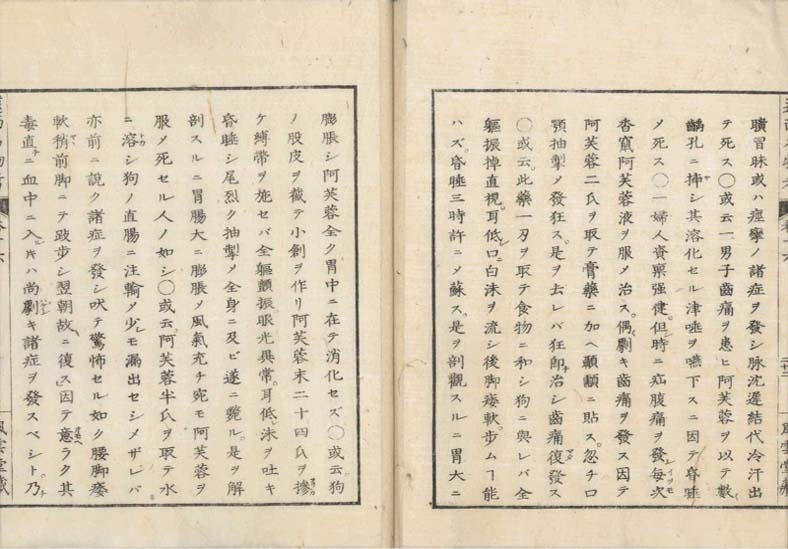 瞶冒眛或ハ痙攣ノ諸症ヲ發シ脉沈遲結代冷汗出
テ死ス〇或云一男子齒痛ヲ患ヒ阿芙蓉ヲ以テ數
齲孔ニ挿シ其溶化セル津唾ヲ嚥下スニ因テ昏睡
メ死ス〇一婦人資稟强健但時ニ疝腹痛ヲ發每次
香竄阿芙蓉液ヲ服メ治ス。偶劇キ齒痛ヲ發ス因テ
阿芙蓉二氏ヲ取テ膏藥ニ加ヘ顳顬ニ貼ス。忽チ口
顎抽掣メ發狂ス。是ヲ去レバ狂即治シ齒痛復發ス
〇或云。此藥一刃ヲ取テ食物ニ和シ狗ニ與レバ全
軀振掉直視。耳低口白沫ヲ流シ後脚痿軟。步ムヿ能
ハズ。昏睡三時許ニメ蘇ス。是ヲ剖觀スルニ胃大ニ
膨脹シ阿芙蓉全ク胃中ニ在テ消化セズ〇或云狗
ノ股皮ヲ截テ小創ヲ作リ阿芙蓉末二十四氏ヲ摻
ケ縛帶ヲ施セバ全軀顫振眼光異常。耳低沫ヲ吐キ
昏睡シ尾烈ク抽掣メ全身ニ及ビ遂ニ斃ル。是ヲ解
剖スルニ胃腸大ニ膨脹メ風氣充チ宛モ阿芙蓉ヲ
服メ死セル人ノ如シ〇或云。阿芙蓉半氏ヲ取テ水
ニ溶シ狗ノ直腸ニ注輸メ少モ漏出セシメザレバ
亦前ニ說ク諸症ヲ發シ吠テ驚怖セル如ク腰脚痿
軟稍前脚ニテ跂步シ翌朝故ニ復ス。因テ意ラク其
毒直ニ血中ニ入キハ尚劇キ諸症ヲ發スベシト。乃
風雲堂藏